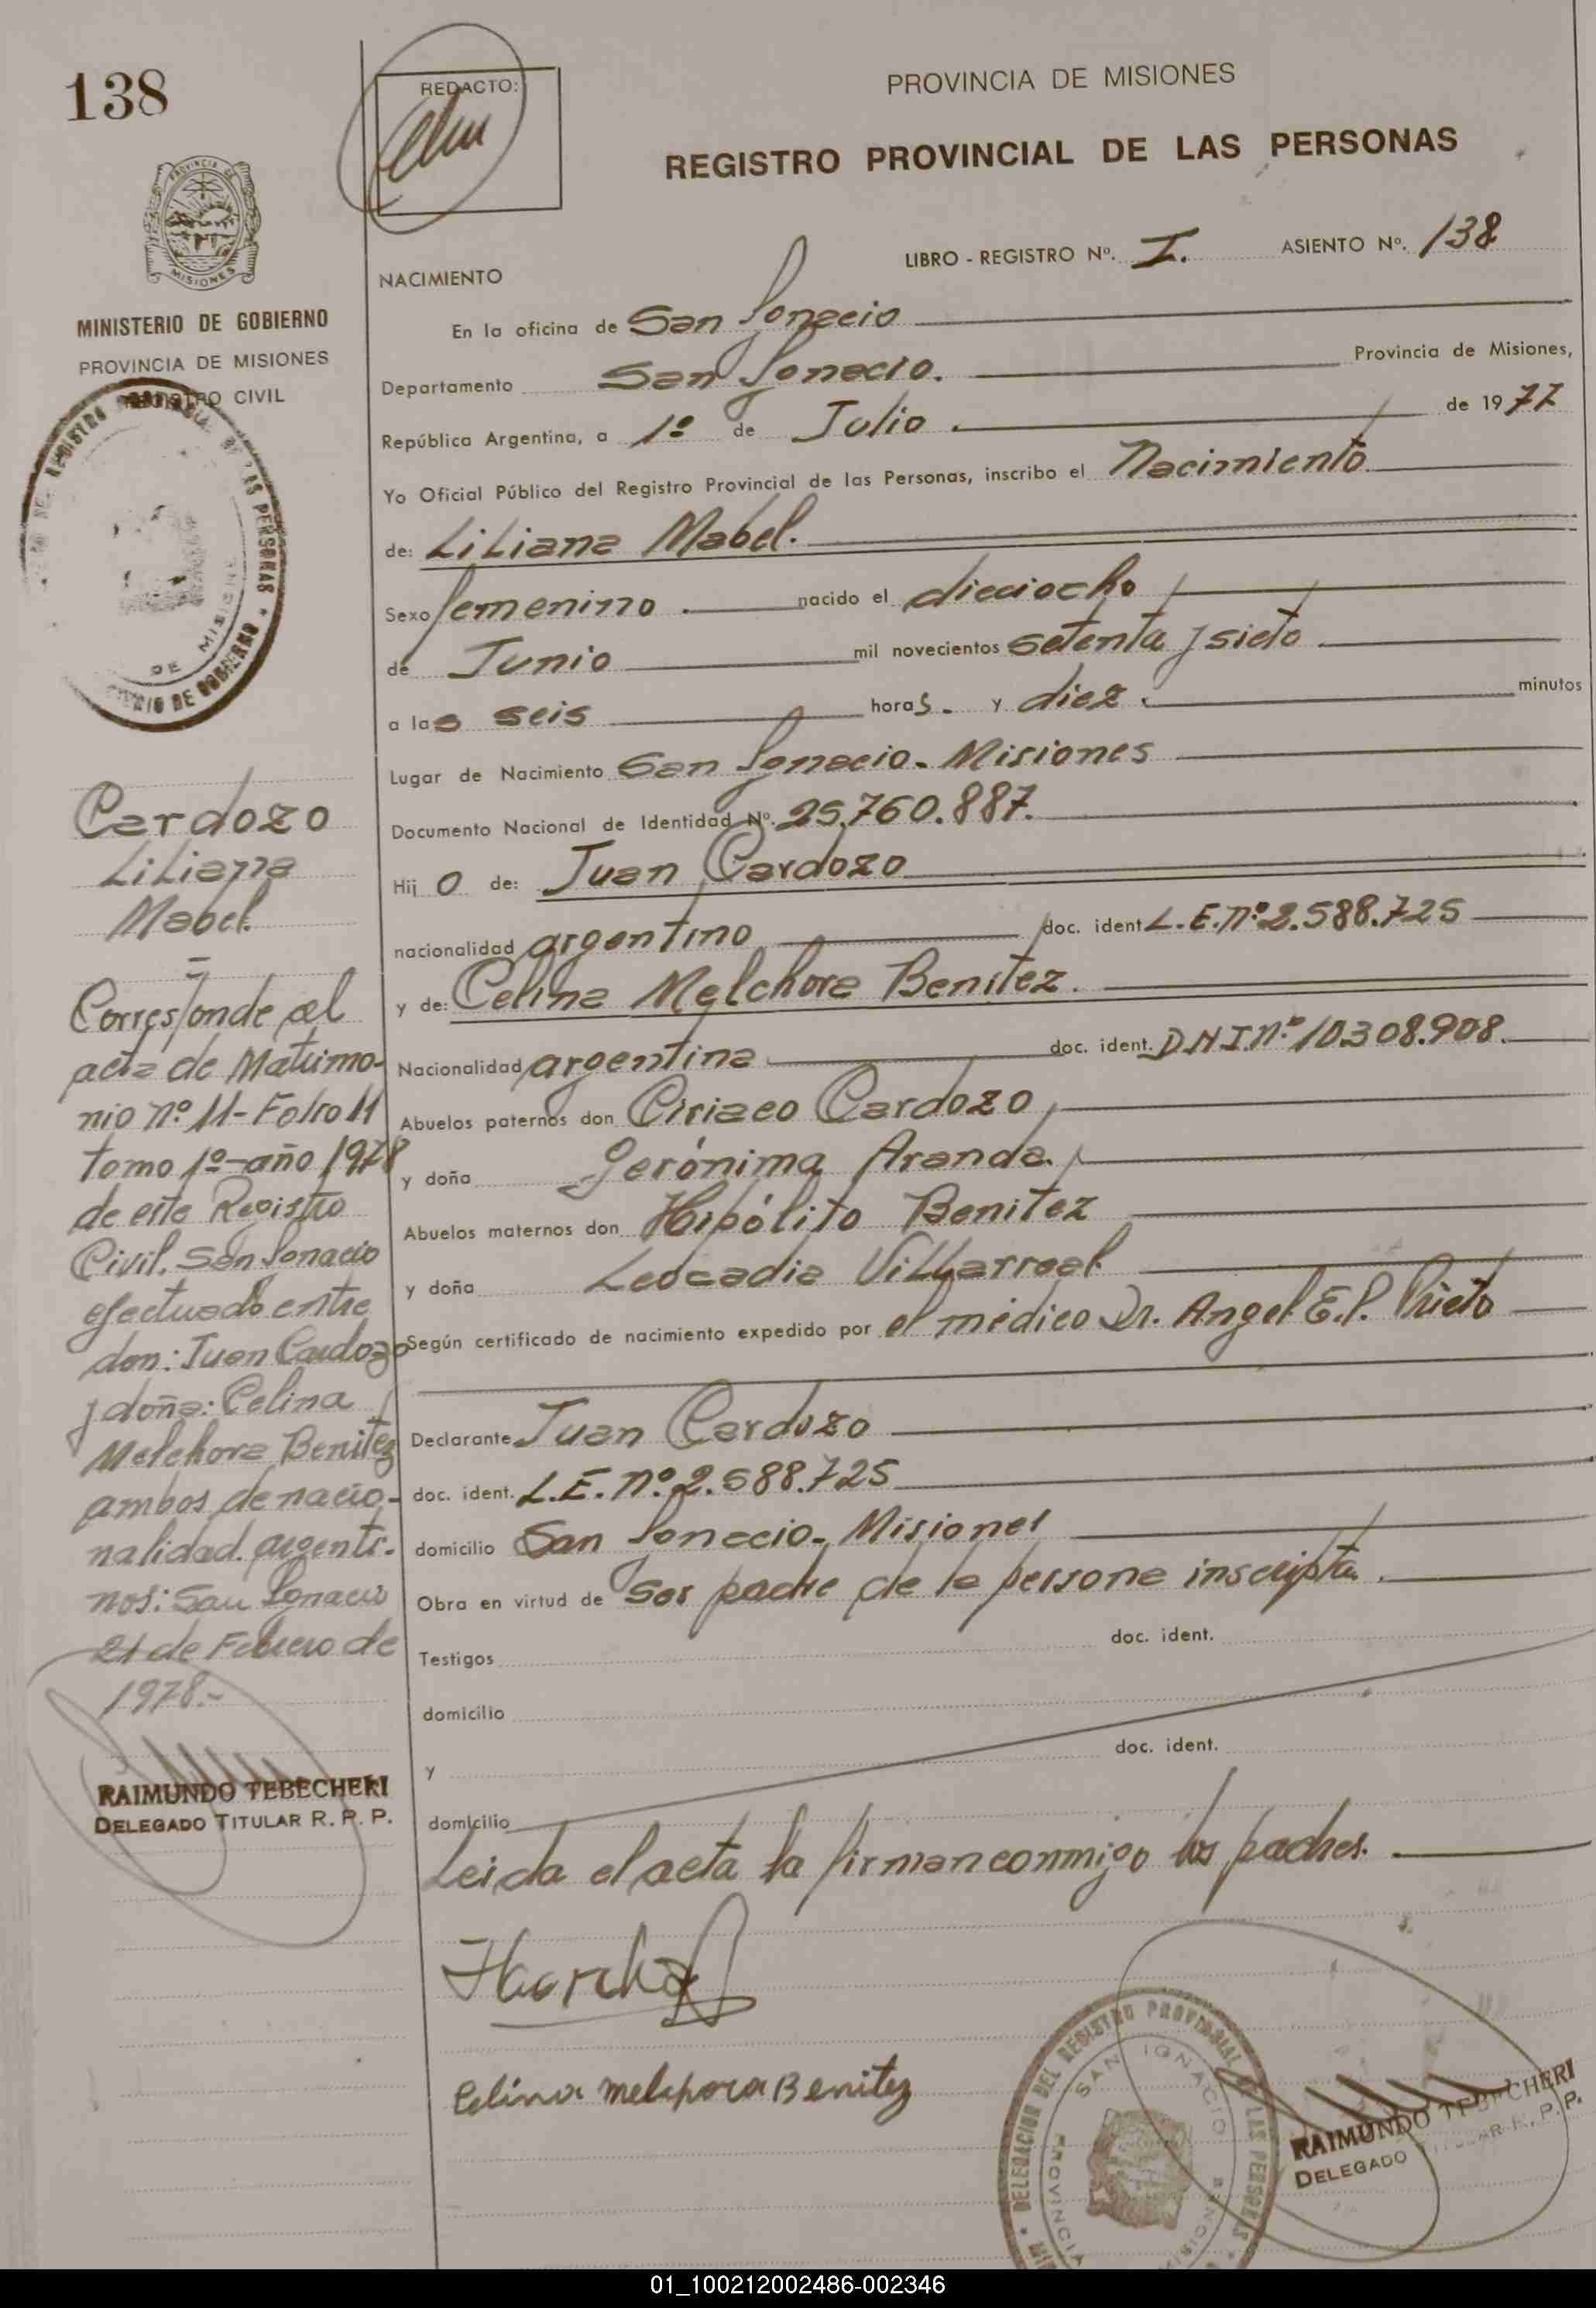 138
REDACTO:
PROVINCIA DE MISIONES
REGISTRO PROVINCIAL DE LAS PERSONAS
LIBRO - REGISTRO Nº. I. ASIENTO Nº. 138
MISIONES
MINISTERIO DE GOBIERNO
PROVINCIA DE MISIONES
REGISTRO CIVIL
NACIMIENTO
En la oficina de San Ignacio
Departamento San Ignacio. Provincia de Misiones,
República Argentina, a 1º de Julio. de 1977
Yo Oficial Público del Registro Provincial de las Personas, inscribo el Nacimiento
de: Liliana Mabel.
Sexo femenino. nacido el dieciocho
de Junio mil novecientos setenta y siete
a las seis horas. y diez. minutos
Lugar de Nacimiento San Ignacio. Misiones
Documento Nacional de Identidad Nº. 25.760.887.
Hij o de: Juan Cardozo
nacionalidad argentino doc. ident. L.E.Nº 2.588.725
y de: Celina Melchora Benitez.
Nacionalidad argentina doc. ident. D.N.I.Nº 10.308.908.
Abuelos paternos don Ciriaco Cardozo,
y doña Gerónima Aranda.
Abuelos maternos don Hipólito Benitez
y doña Leocadia Villarreal
Según certificado de nacimiento expedido por el médico Dr. Angel E.P. Prieto
Declarante Juan Cardozo
doc. ident. L.E.Nº 2.588.725
domicilio San Ignacio. Misiones
Obra en virtud de Ser padre de la persona inscripta.
Testigos doc. ident.
domicilio
y doc. ident.
domicilio
Leida el acta la firman conmigo los padres.
Celina melchora Benitez
Cardozo
Liliana
Mabel.
=
Corresponde al
acta de Matrimo-
nio nº 11-Folio 11
tomo 1º-año 1978
de este Registro
Civil. San Ignacio
efectuado entre
don: Juan Cardozo
y doña: Celina
Melchora Benitez
ambos de nacio-
nalidad argenti-
nos: San Ignacio
21 de Febrero de
1978.-
RAIMUNDO TEBECHERI
DELEGADO TITULAR R. P. P.
DELEGACION DEL REGISTRO PROVINCIAL DE LAS PERSONAS
SAN IGNACIO
RAIMUNDO TEBECHERI
DELEGADO TITULAR R. P. P.
01_100212002486-002346